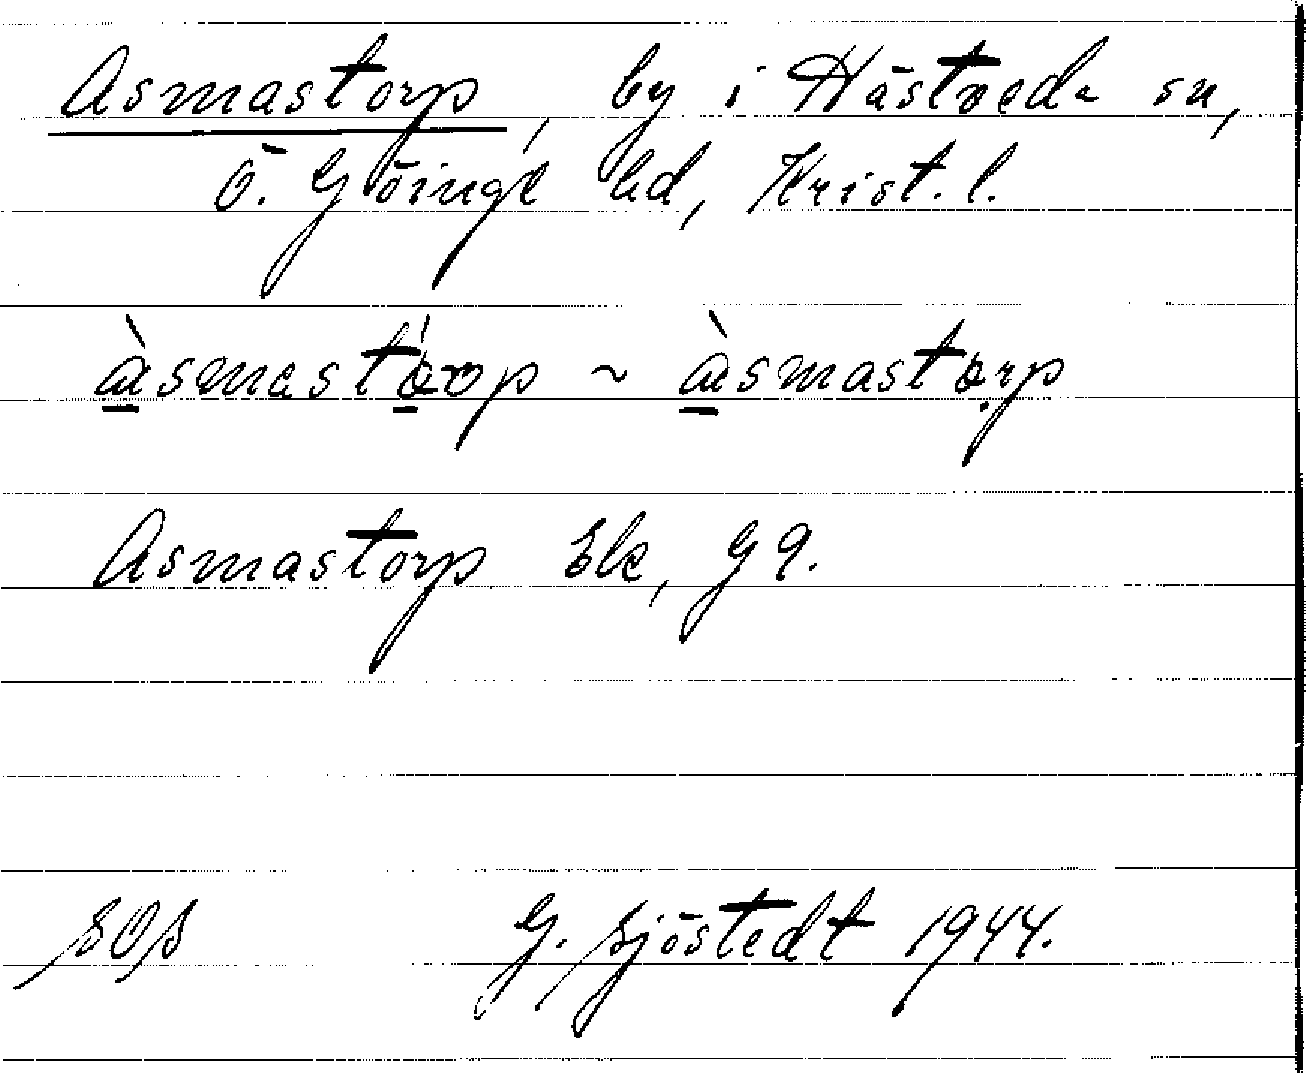 Asmastorp, by i Hästveda sn,
Ö. Göinge hd, Krist. l.
àsmastórp ~ àsmastorp
Asmastorp Ek, G 9.
SOS G. Sjöstedt 1944.